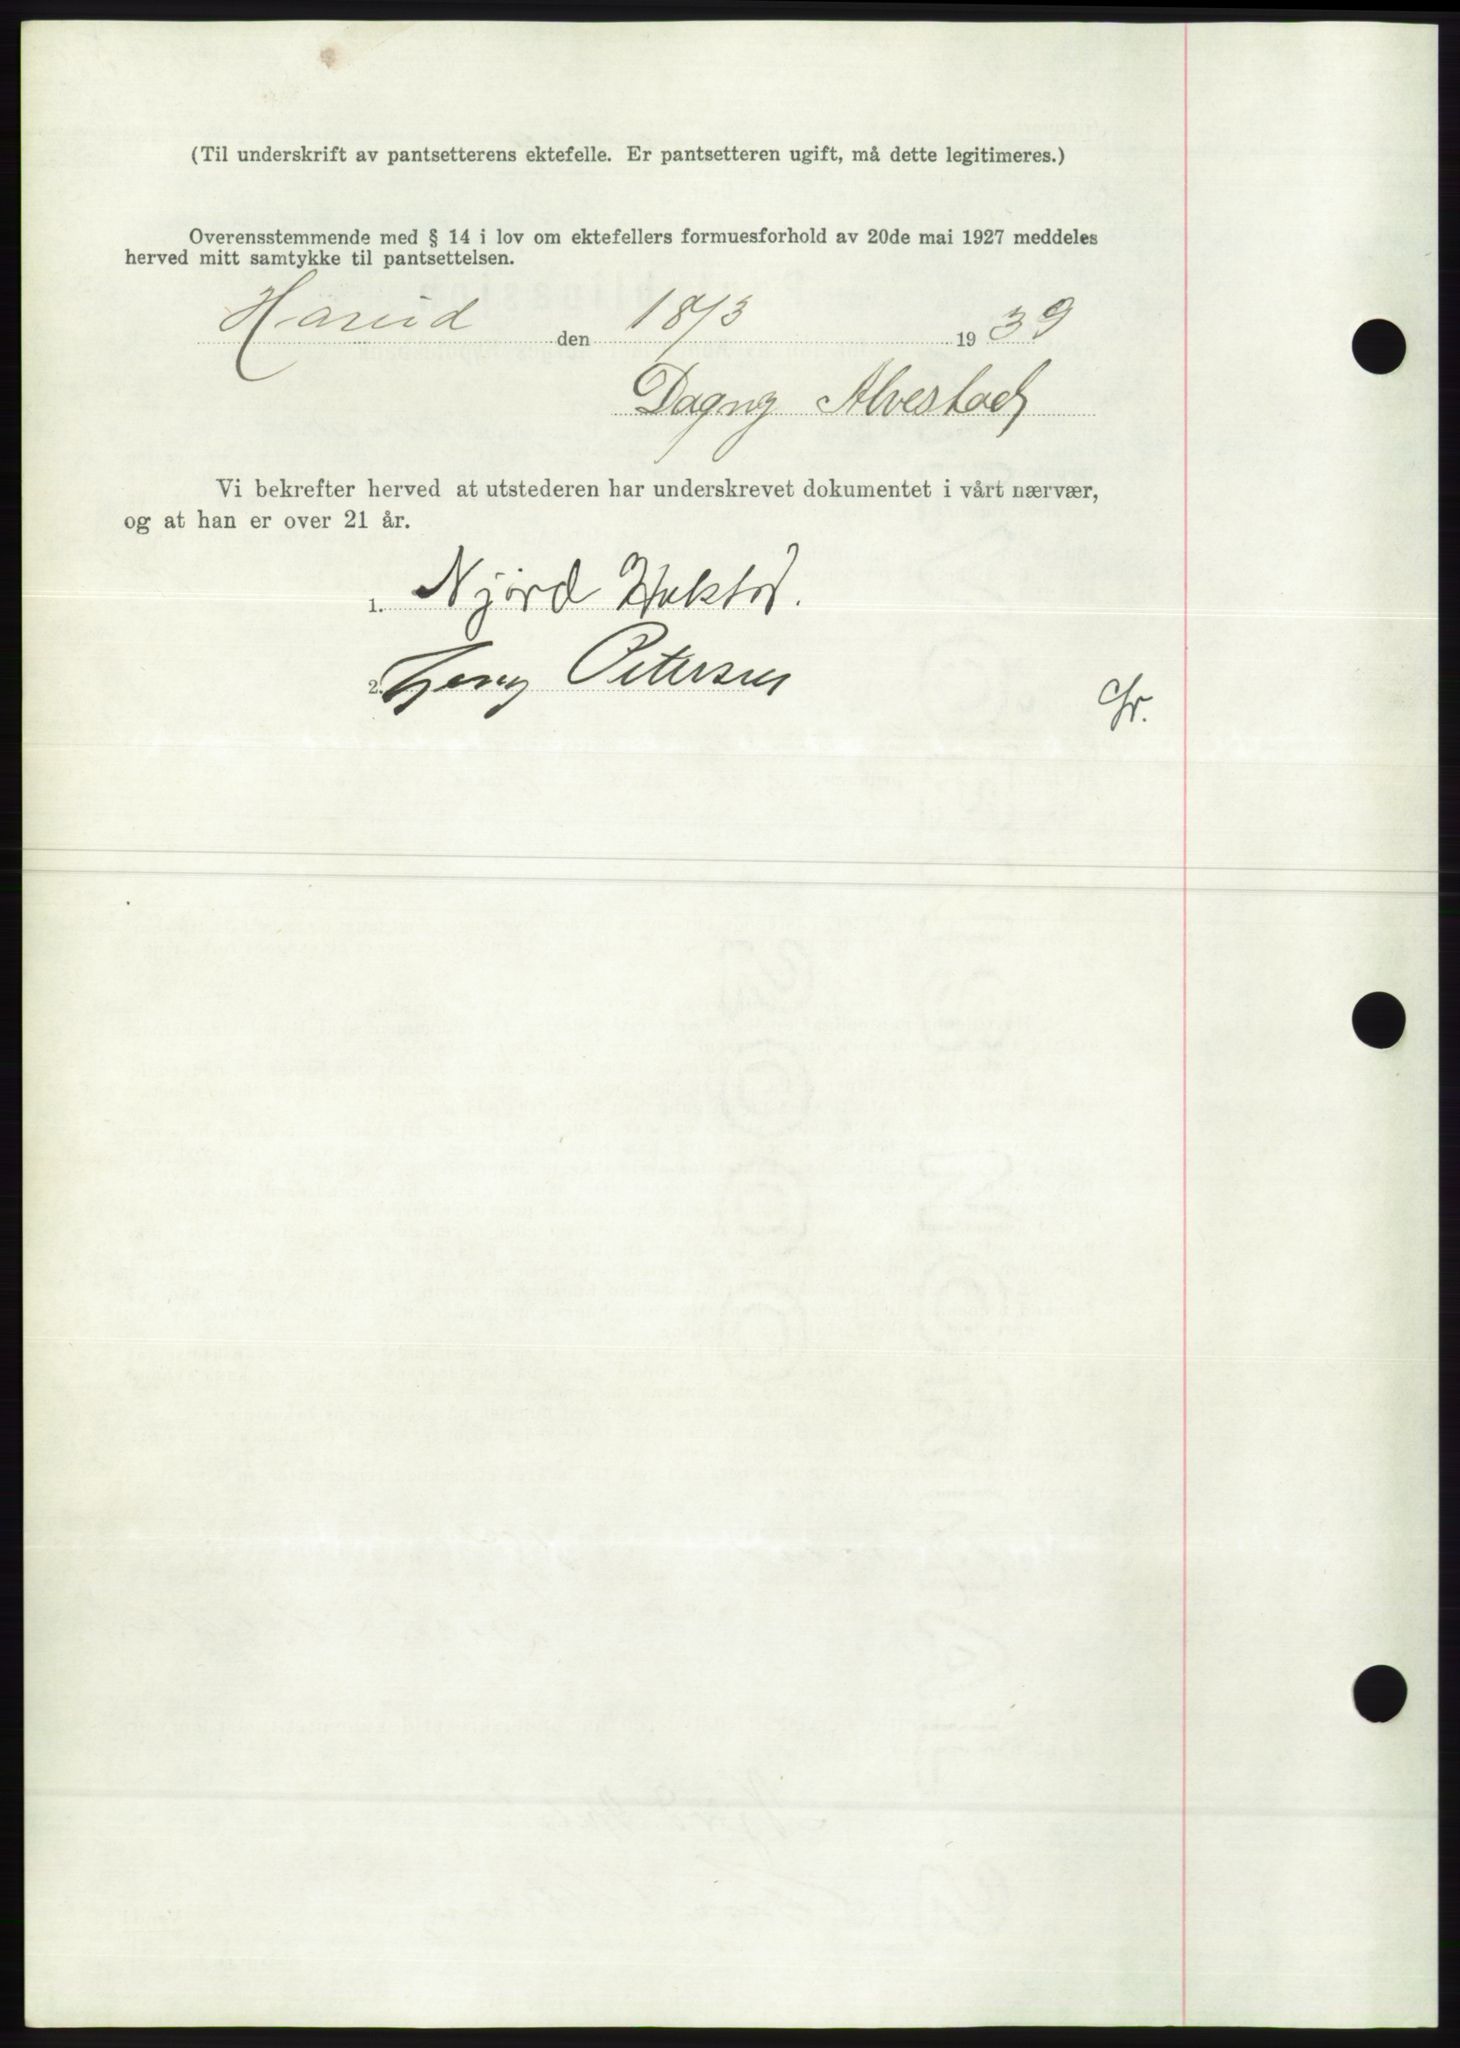 (Til underskrift av pantsetterens ektefelle. Er pantsetteren ugift, må dette legitimeres.)
Overensstemmende med § 14 i lov om ektefellers formuesforhold av 20de mai 1927 meddeles
herved mitt samtykke til pantsettelsen.
Hareid den 18/3 1939
Dagny Alvestad
Vi bekrefter herved at utstederen har underskrevet dokumentet i vårt nærvær,
og at han er over 21 år.
1. Njørd
2. Petersen